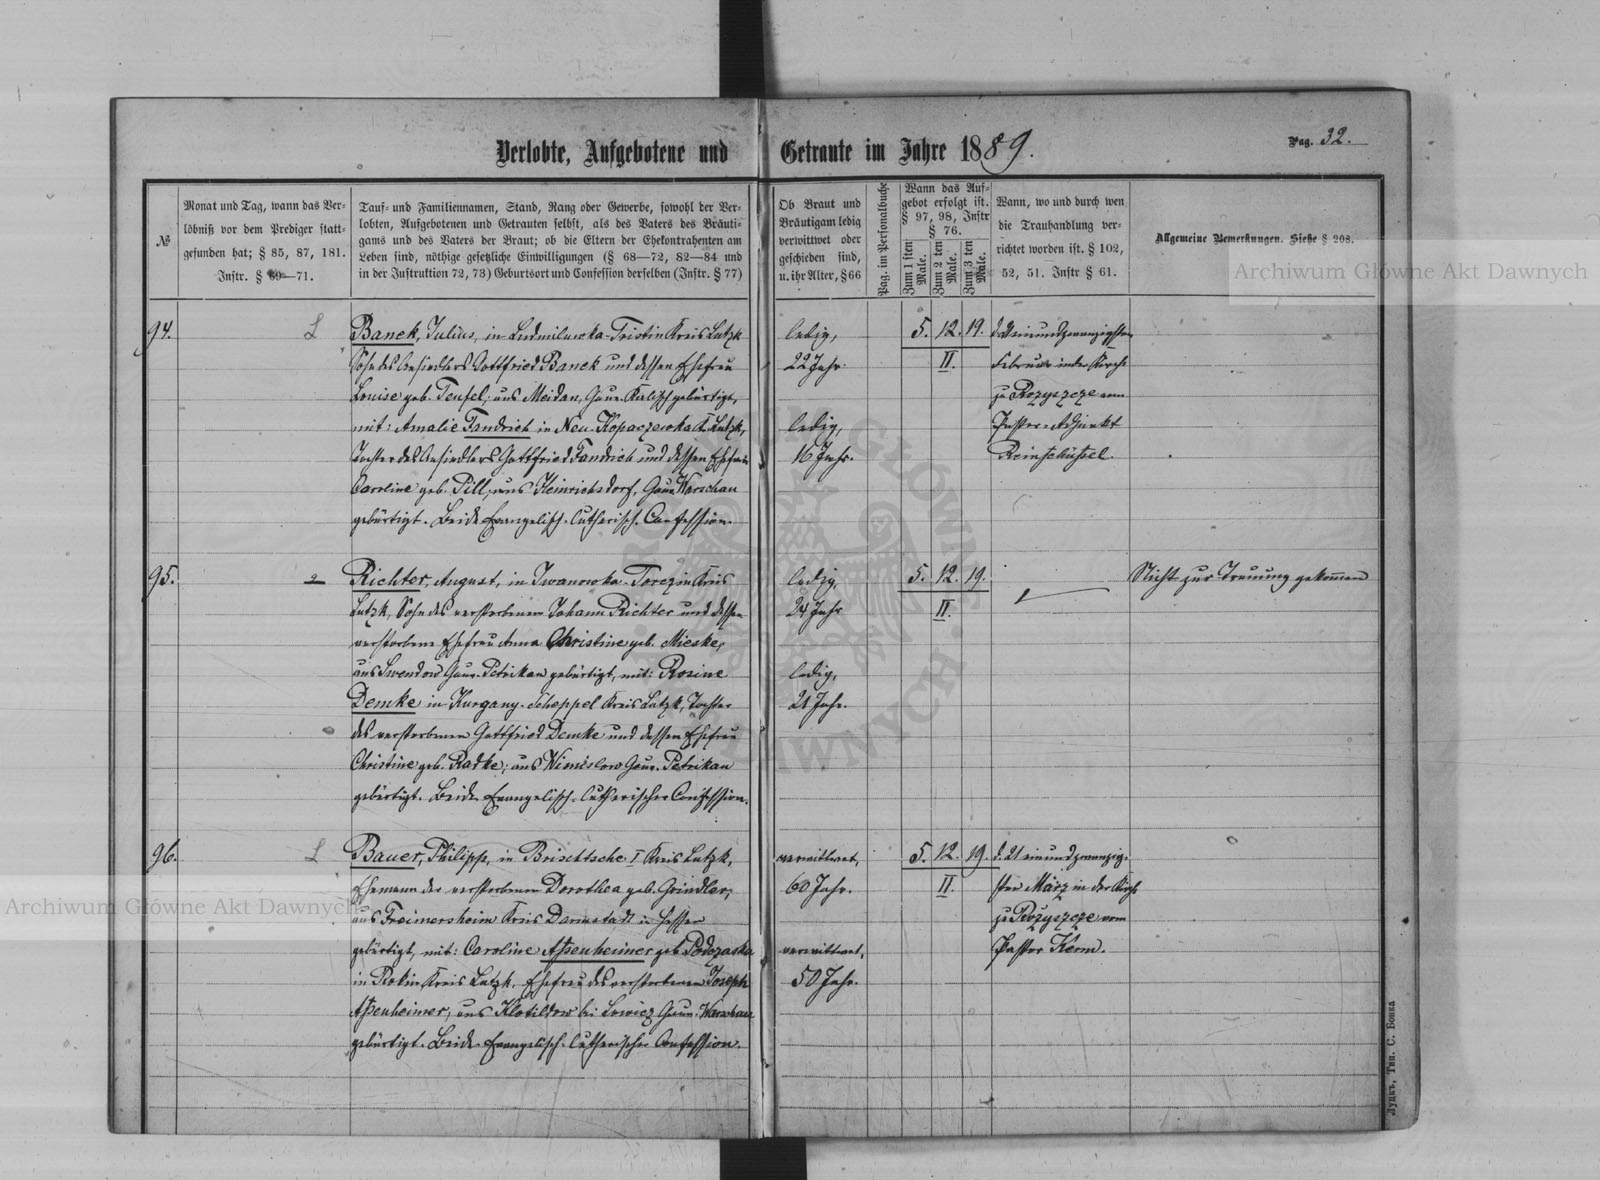 Verlobte, Aufgebotene und Getraute im Jahre 1889.
Pag. 32.
№
Monat und Tag, wann das Ver-
löbniß vor dem Prediger statt-
gefunden hat; § 85, 87, 181.
Instr. § 69—71.
Tauf- und Familiennamen, Stand, Rang oder Gewerbe, sowohl der Ver-
lobten, Aufgebotenen und Getrauten selbst, als des Vaters des Bräuti-
gams und des Vaters der Braut; ob die Eltern der Ehekontrahenten am
Leben sind, nöthige gesetzliche Einwilligungen (§ 68—72, 82—84 und
in der Instruktion 72, 73) Geburtsort und Confession derselben (Instr. § 77)
Ob Braut und
Bräutigam ledig
verwittwet oder
geschieden sind,
u. ihr Alter, § 66
Pag. im Personalbuche
Wann das Auf-
gebot erfolgt ist.
§ 97, 98, Instr
§ 76.
Zum 1 sten Male.
Zum 2 ten Male.
Zum 3 ten Male.
Wann, wo und durch wen
die Trauhandlung ver-
richtet worden ist. § 102,
52, 51. Instr § 61.
Allgemeine Bemerkungen. Siehe § 208.
94.
L
Banek, Julius, in Ludmilowka-Tristin Kreis Lutzk
Sohn des Ansiedlers Gottfried Banek und dessen Ehefrau
Louise geb. Teufel; aus Meidan, Gouv. Kalisch gebürtigt,
mit: Amalie Fandrich in Neu-Kopaczewka K. Lutzk,
Tochter des Ansiedlers Gottfried Fandrich und dessen Ehefrau
Caroline geb. Pill, aus Heinrichsdorf, Gouv. Warschau
gebürtigt. Beide Evangelisch-lutherisch. Confession.
ledig,
22 Jahr.
ledig,
16 Jahr.
5. 12. 19.
II.
d. 21 einundzwanzigsten
Februar in der Kirche
zu Rozyszcze vom
Pastor-Adjunkt
Reinschüssel.
95.
Richter, August, in Iwanowka-Torczin Kreis
Lutzk, Sohn des verstorbenen Johann Richter und dessen
verstorbene Ehefrau Anna Christine geb. Mieske,
aus Swendow Gouv. Petrikau gebürtigt, mit: Rosine
Demke in Kurgany-Scheppel Kreis Lutzk, Tochter
des verstorbenen Gottfried Demke und dessen Ehefrau
Christine geb. Radke; aus Wimislow Gouv. Petrikau
gebürtigt. Beide Evangelisch-lutherischer Confession.
ledig,
24 Jahr
ledig,
21 Jahr.
5. 12. 19.
II.
Nicht zur Trauung gekommen
96.
L
Bauer, Philipp, in Brischtsche I Kreis Lutzk,
Ehemann der verstorbenen Dorothea geb. Grindler,
aus Freimersheim Kreis Darmstadt in Hessen
gebürtigt, mit: Caroline Aßenheimer geb. Podczaska
in Rokin Kreis Lutzk, Ehefrau des verstorbenen Joseph
Aßenheimer, aus Klotildow bei Lowicz Gouv. Warschau
gebürtigt. Beide Evangelisch-lutherischer Confession.
verwittwet,
60 Jahr.
verwittwet,
50 Jahr.
5. 12. 19.
II.
d. 21 einundzwanzig-
sten März in der Kirche
zu Rożyszcze vom
Pastor Kerm.
Луцкъ, Тип. С. Бонка
Archiwum Główne Akt Dawnych
Archiwum Główne Akt Dawnych